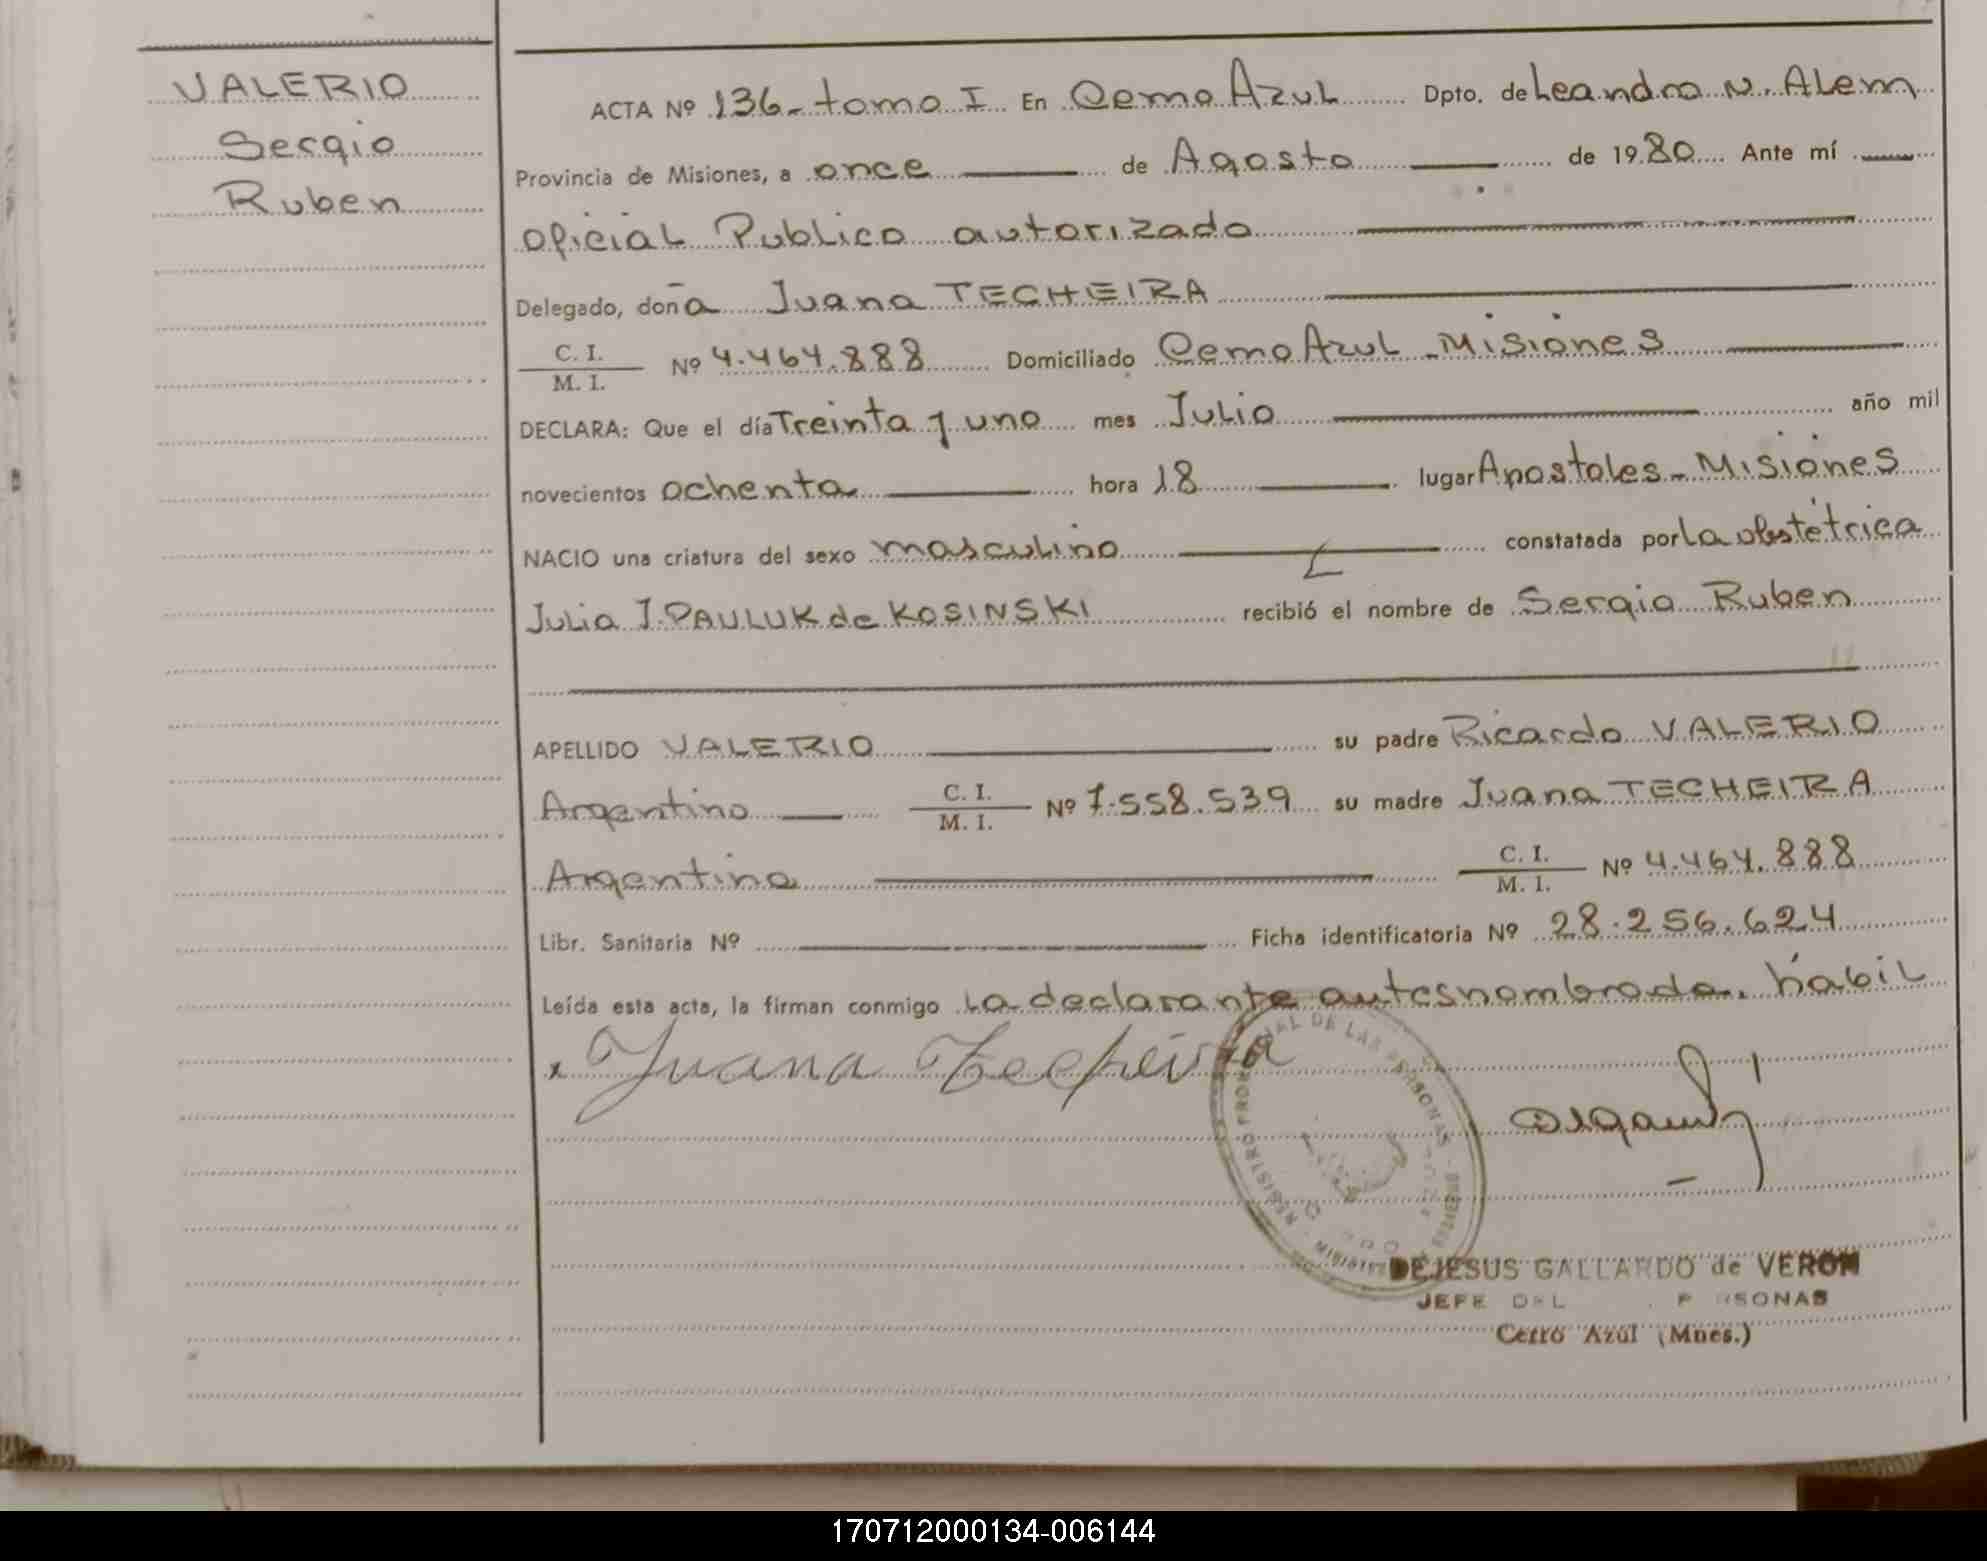 VALERIO
Sergio
Ruben
ACTA Nº 136- tomo I En Cerro Azul Dpto. de Leandro N. Alem
Provincia de Misiones, a once de Agosto de 1980 Ante mí
Oficial Publico autorizado
Delegado, doña Juana TECHEIRA
C. I.
M. I. Nº 4.464.888 Domiciliado Cerro Azul - Misiones
DECLARA: Que el día Treinta y uno mes Julio año mil
novecientos ochenta hora 18 lugar Apostoles - Misiones
NACIO una criatura del sexo masculino constatada por la obstétrica
Julia J. PAULUK de KOSINSKI recibió el nombre de Sergio Ruben
APELLIDO VALERIO su padre Ricardo VALERIO
Argentino C. I. M. I. Nº 7.558.539 su madre Juana TECHEIRA
Argentina C. I. M. I. Nº 4.464.888
Libr. Sanitaria Nº Ficha identificatoria Nº 28.256.624
Leída esta acta, la firman conmigo la declarante antesnombrada. hábil
x Juana Techeira
REGISTRO PROVINCIAL DE LAS PERSONAS
DEJESUS GALLARDO de VERON
JEFE DEL PERSONAS
Cerro Azul (Mnes.)
170712000134-006144